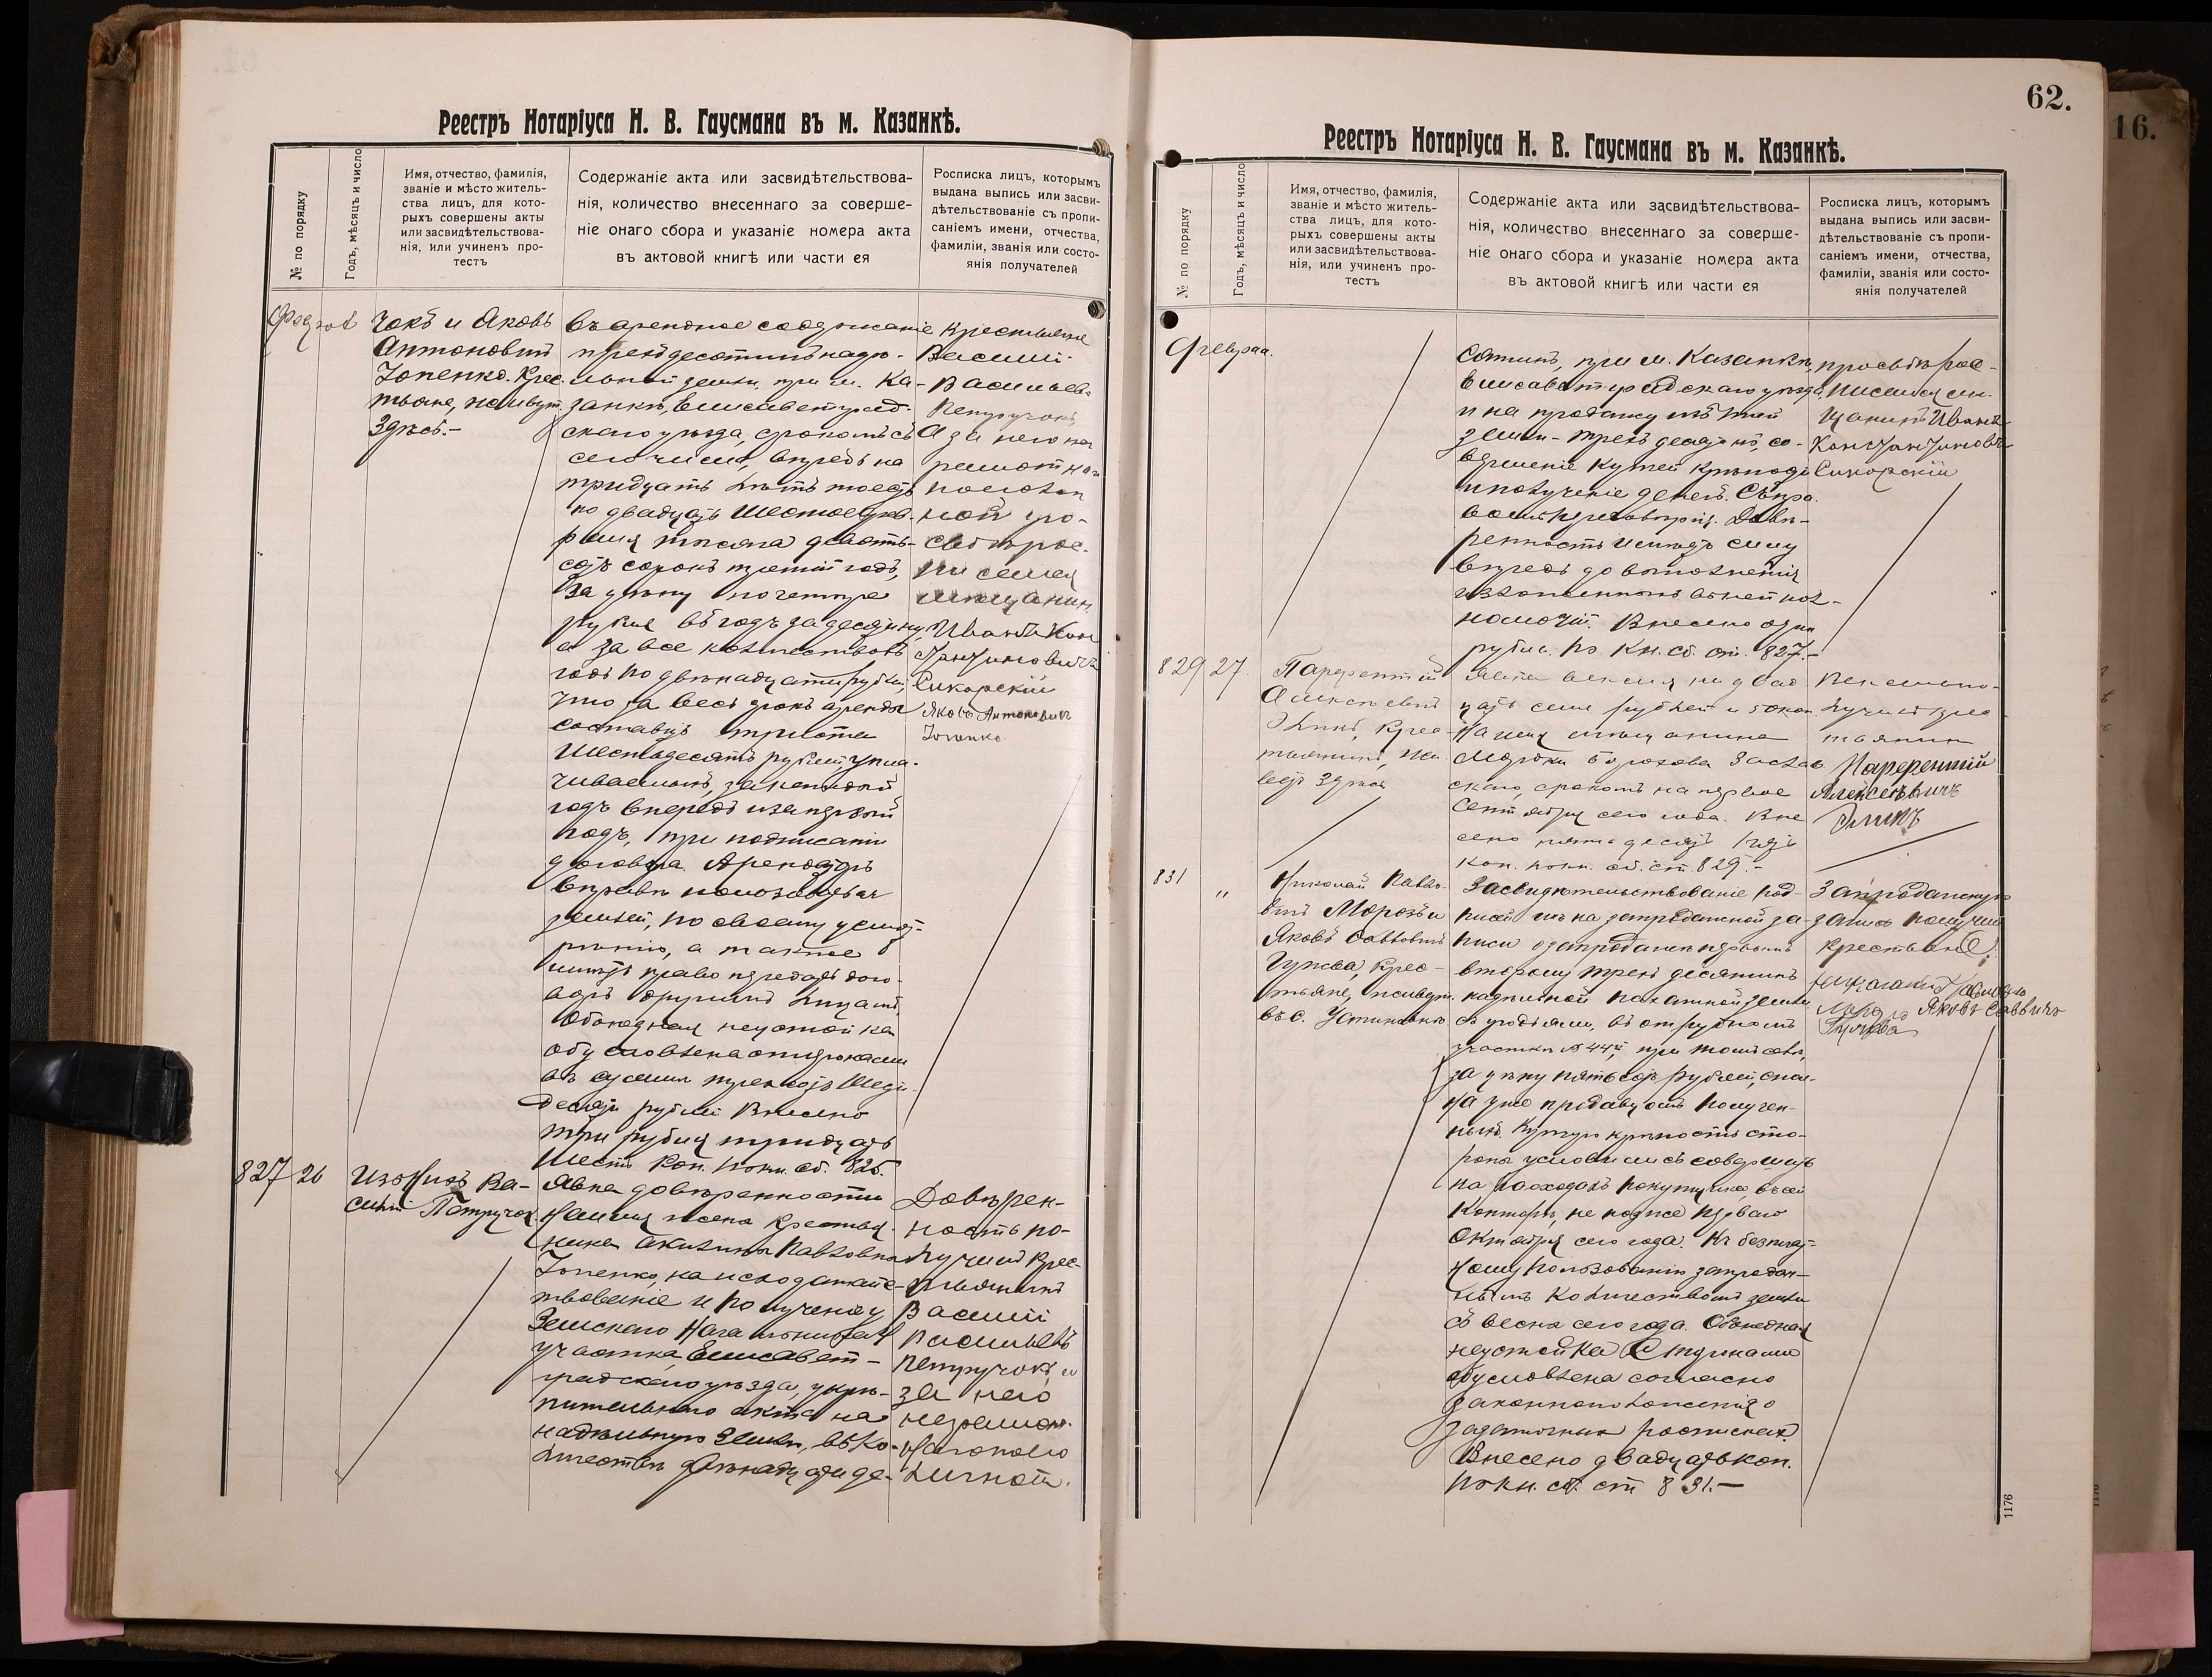 Реестръ Нотаріуса Н. В. Гаусмана въ м. Казанкѣ.
№ по порядку
Годъ, мѣсяцъ и число
Имя, отчество, фамилія,
званіе и мѣсто житель-
ства лицъ, для кото-
рыхъ совершены акты
или засвидѣтельствова-
нія, или учиненъ про-
тестъ
Содержаніе акта или засвидѣтельствова-
нія, количество внесеннаго за соверше-
ніе онаго сбора и указаніе номера акта
въ актовой книгѣ или части ея
Росписка лицъ, которымъ
выдана выпись или засви-
дѣтельствованіе съ пропи-
саніемъ имени, отчества,
фамиліи, званія или состо-
янія получателей
чокъ и Яковъ
Антоновичъ
Крес-
тьяне, живут.
Здѣсь.-
въ арендное содержаніе
трехъ десятинъ надѣ-
льной земли, при м. Ка-
занкѣ, Елисаветград-
скаго уѣзда, срокомъ съ
сего числа, впредь на
тридцать лѣтъ тоестъ
по двадцать шестое фев-
раля тысяча девять-
сотъ сорокъ третій годъ,
За цѣну по четыре
рубля въ годъ за десятину,
а за все количество въ
годъ по двѣнадцати рублей,
что за весь срокъ аренды
составитъ триста
шестьдесятъ рублей, упла-
чиваемыхъ, за каждый
годъ впередъ и за первый
годъ, при подписаніи
договора. Арендаторъ
вправѣ пользоваться
землей, по своему усмот-
рѣнію, а также
имѣетъ право передать дого-
воръ другимъ лицамъ.
Обоюдная неустойка
обусловлена сторонами
въ суммѣ трехсотъ шести-
десяти рублей Внесено
три рубля тридцать
шесть коп. по кн. сб. 825.
Крестьяне
Василій
Васильевъ
Петручокъ
А за него не
грамотна-
го по лич-
ной про-
сьбѣ рос-
писался
мѣщанинъ
Иванъ Кон-
стантиновичъ
Сикорскій
Яковъ Антоновичъ
827 26
Василій Петручок.
Явка довѣренности
жена крестья-
нина Акилина Павловна
на исходатай-
ствованіе и полученіе у
Земскаго Начальника
участка, Елисавет-
градскаго уѣзда, укрѣ-
пительнаго акта на
надѣльную землю, въ ко-
личествѣ двѣнадцати де-
Довѣрен-
ность по-
лучилъ Крес-
тьянинъ
Василій
Васильевъ
Петручокъ, а
за него
неграмот-
наго по его
личной
62.
16.
Реестръ Нотаріуса Н. В. Гаусмана въ м. Казанкѣ.
№ по порядку
Годъ, мѣсяцъ и число
Имя, отчество, фамилія,
званіе и мѣсто житель-
ства лицъ, для кото-
рыхъ совершены акты
или засвидѣтельствова-
нія, или учиненъ про-
тестъ
Содержаніе акта или засвидѣтельствова-
нія, количество внесеннаго за соверше-
ніе онаго сбора и указаніе номера акта
въ актовой книгѣ или части ея
Росписка лицъ, которымъ
выдана выпись или засви-
дѣтельствованіе съ пропи-
саніемъ имени, отчества,
фамиліи, званія или состо-
янія получателей
Февраля.
сятинъ, при м. Казанкѣ,
Елисаветградскаго уѣзда.
и на продажу изъ той
земли - трехъ десятинъ, со-
вершеніе купчей крѣпости
и полученіе денегъ. Съ пра-
вомъ передовѣрія. Довѣ-
ренность имѣетъ силу
впредь до выполненія
изложенныхъ въ ней пол-
номочій. Внесено одинъ
рубль. По кн. сб. ст. 827.-
просьбѣ рос-
писался мѣ-
щанинъ Иванъ
Константиновичъ
Сикорскій
829 27.
Парфентій
Алексѣевичъ
Крес-
тьянинъ, жи-
ветъ здѣсь
векселя на двад-
цать семь рублей и 50 коп.
мѣщанина
срокомъ на первое
Сентября сего года. Вне-
сено пятьдесятъ пять
коп. по кн. сб. ст. 829.-
Вексель по-
лучилъ крес-
тьянинъ
Парфентій
Алексѣевичъ
831 "
Николай Павло-
вичъ Морозъ и
Яковъ Савовичъ
Крес-
тьяне, живут.
въ с.
Засвидѣтельствованіе под-
писей ихъ на запродажной за-
писи о запродажѣ первымъ
второму трехъ десятинъ
надѣльной пахатной земли
съ угодіями, въ отрубномъ
участкѣ № 44й, при томъ селѣ,
за цѣну пятьсотъ рублей, спол-
на уже продавцомъ получен-
ныхъ. Купчую крѣпость сто-
роны условились совершить
на расходахъ покупщика, въ сей
Конторѣ, не позже перваго
Октября сего года. Къ безплат-
ному пользованію запродан-
нымъ количествомъ земли
съ весны сего года. Обоюдная
неустойка сторонами
обусловлена согласно
законоположенія о
задаточныхъ роспискахъ.
Внесено двадцать коп.
по кн. сб. ст 831.-
Запродажную
запись получили
крестьяне:
Яковъ Саввичъ
1176